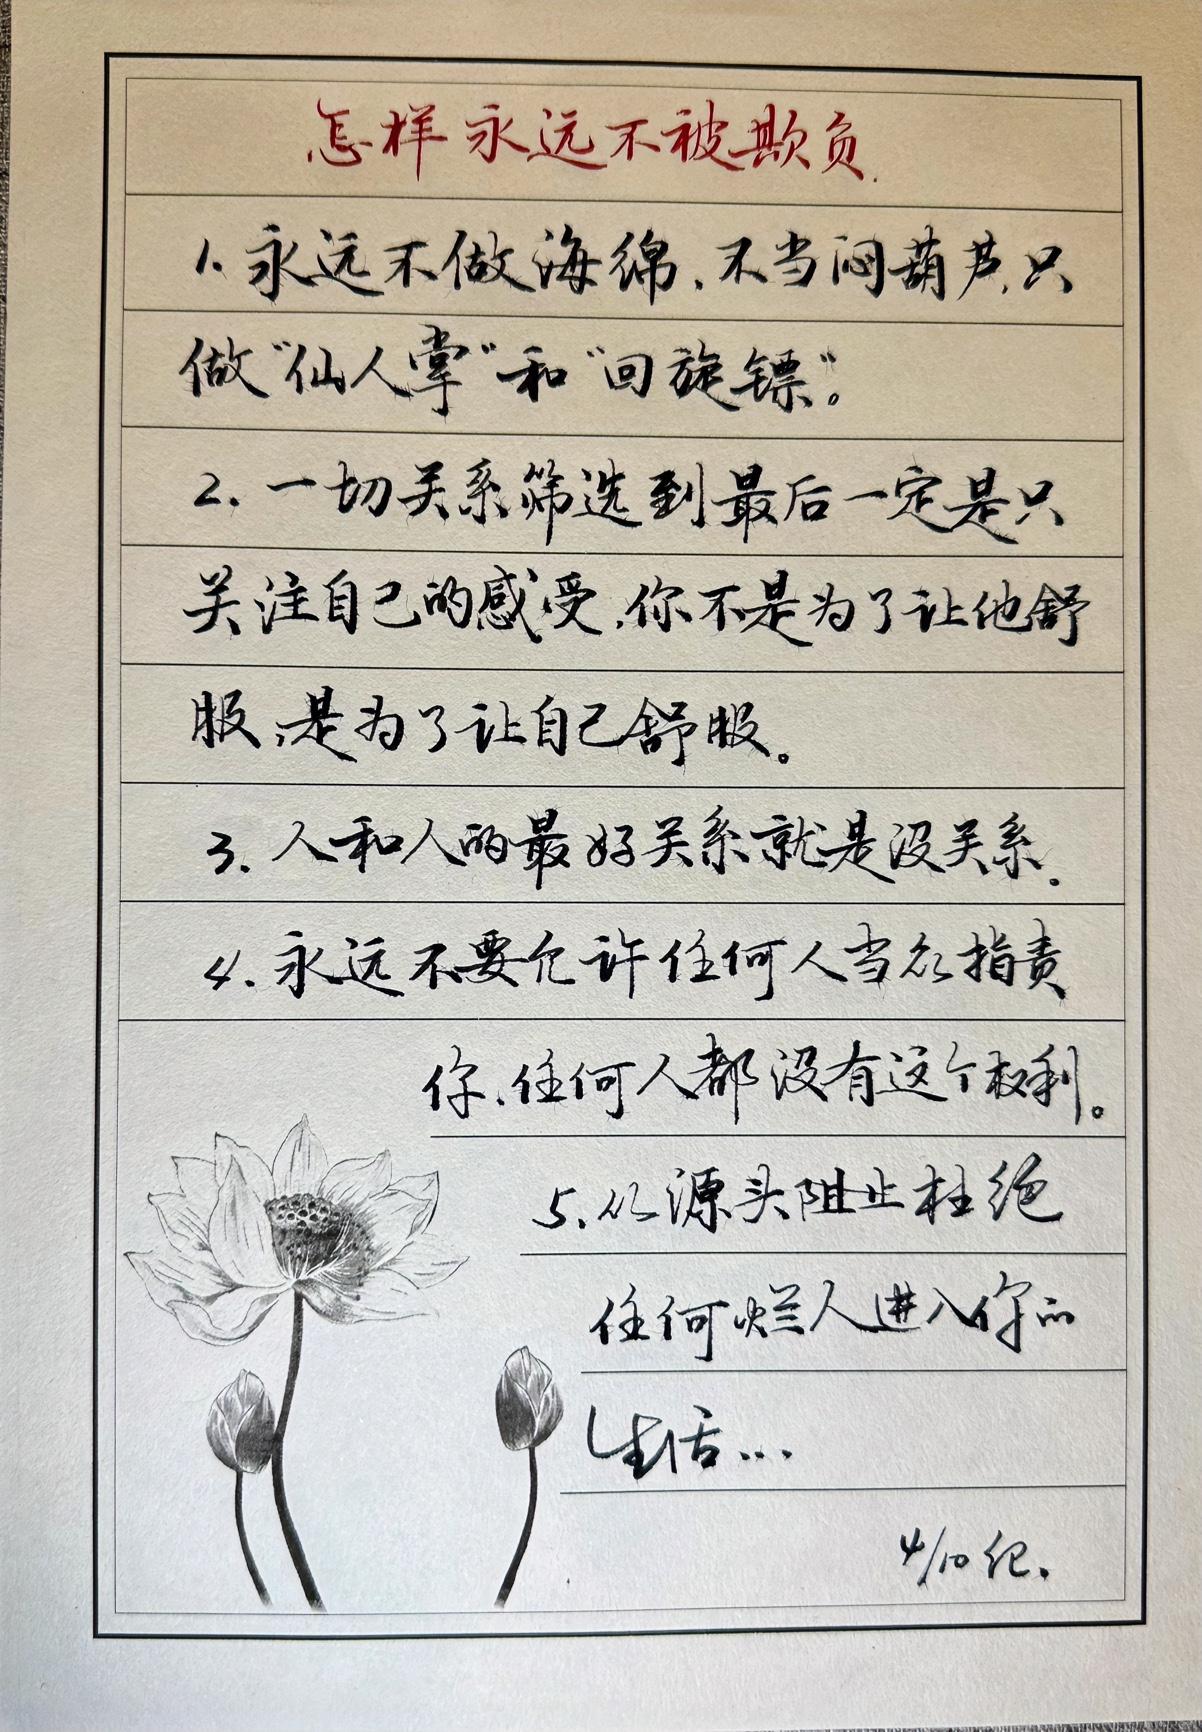 怎样永远不被欺负.
1.永远不做海绵、不当闷葫芦,只
做"仙人掌"和"回旋镖"。
2.一切关系筛选到最后一定是只
关注自己的感受,你不是为了让他舒
服,是为了让自己舒服。
3.人和人的最好关系就是没关系.
4.永远不要允许任何人当众指责
你、任何人都没有这个权利。
5.从源头阻止杜绝
任何烂人进入你的
生活...
4/10纪.